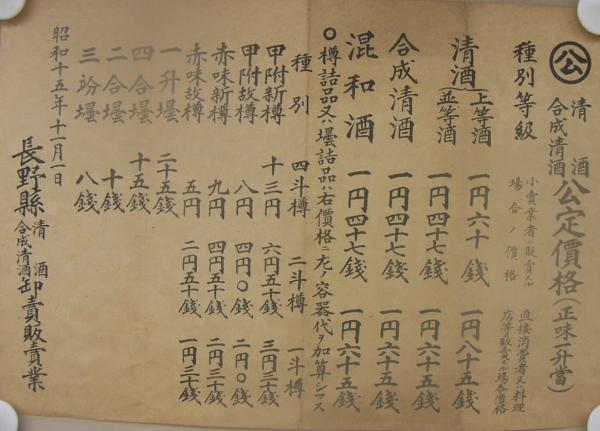 公 清酒 合成清酒 公定價格(正味一升當)
種別等級 小賣業者ニ販賣スル場合ノ價格 直接消費者又ハ料理店等ニ販賣スル場合ノ價格
清酒(上等酒 一円六十錢 一円八十五錢
並等酒) 一円四十七錢 一円六十五錢
合成清酒 一円四十七錢 一円六十五錢
混和酒 一円四十七錢 一円六十五錢
○樽詰品又ハ壜詰品ハ右價格ニ左ノ容器代ヲ加算シマス
種別 四斗樽 二斗樽 一斗樽
甲附新樽 十三円 六円五十錢 三円三十錢
甲附故樽 八円 四円〇錢 二円〇錢
赤味新樽 九円 四円五十錢 二円三十錢
赤味故樽 五円 二円五十錢 一円三十錢
一升壜 二十五錢
四合壜 十五錢
二合壜 十錢
三竕壜 八錢
昭和十五年十一月一日
長野縣 清酒 合成清酒 卸賣販賣業